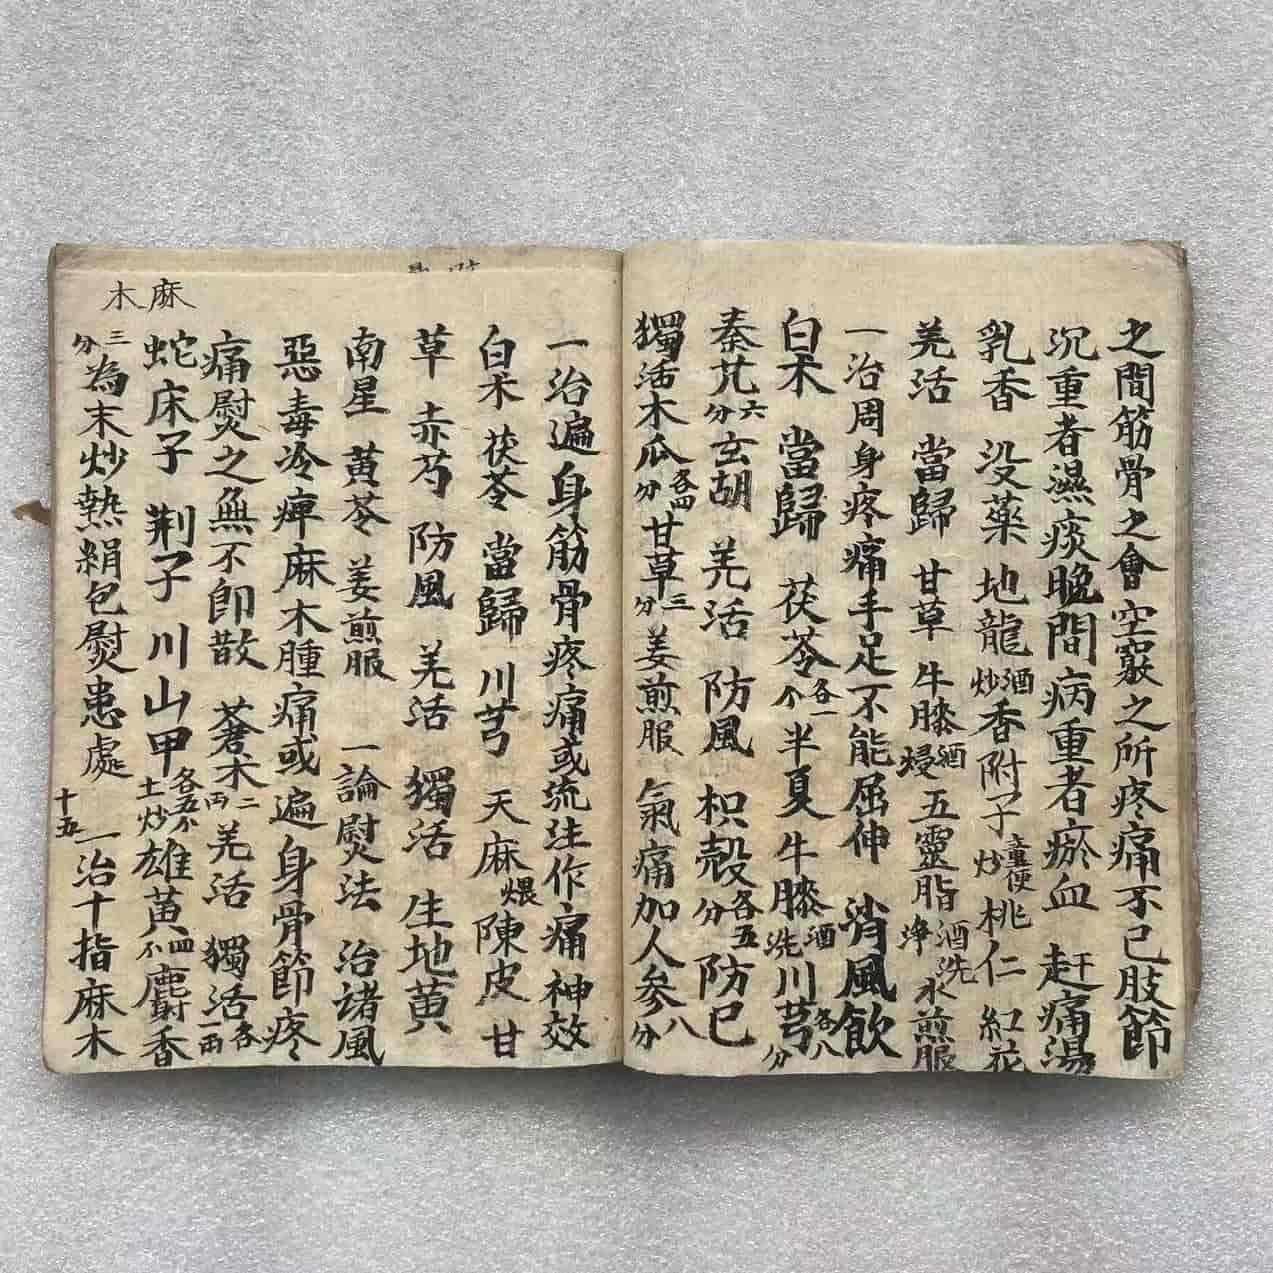 之間筋骨之會空竅之所疼痛不已肢節
沉重者濕痰晚間病重者瘀血 赶痛湯
乳香 没藥 地龍酒炒香附子童便炒桃仁 紅花
羌活 當歸 甘草 牛膝酒浸五靈脂酒洗净水煎服
一治周身疼痛手足不能屈伸 消風飲
白朮 當歸 茯苓各一个半夏牛膝酒洗川芎各八分
秦艽六分玄胡 羌活 防風 枳殻各五分防已
獨活木瓜各四分甘草三分姜煎服 氣痛加人參八分
一治遍身筋骨疼痛或流注作痛神效
白朮茯苓當歸川芎 天麻煨陳皮甘
草 赤芍 防風 羌活 獨活 生地黄
南星 黄苓 姜煎服 一論熨法 治諸風
惡毒冷痺麻木腫痛或遍身骨節疼
痛熨之無不卽散 蒼朮二两羌活 獨活各一两
蛇床子荆子川山甲各五个土炒雄黄四个麝香
三分為末炒熱絹包熨患處 一治十指麻木
麻木
十五